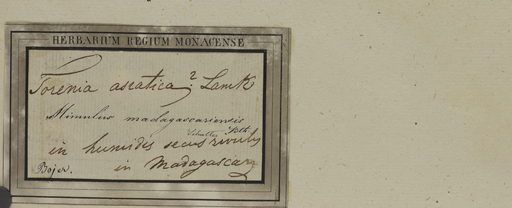 HERBARIUM REGIUM MONACENSE
Torenia asiatica? Lamk
Mimulus madagascariensis
in humidis secus rivulos
in Madagascar
Bojer.